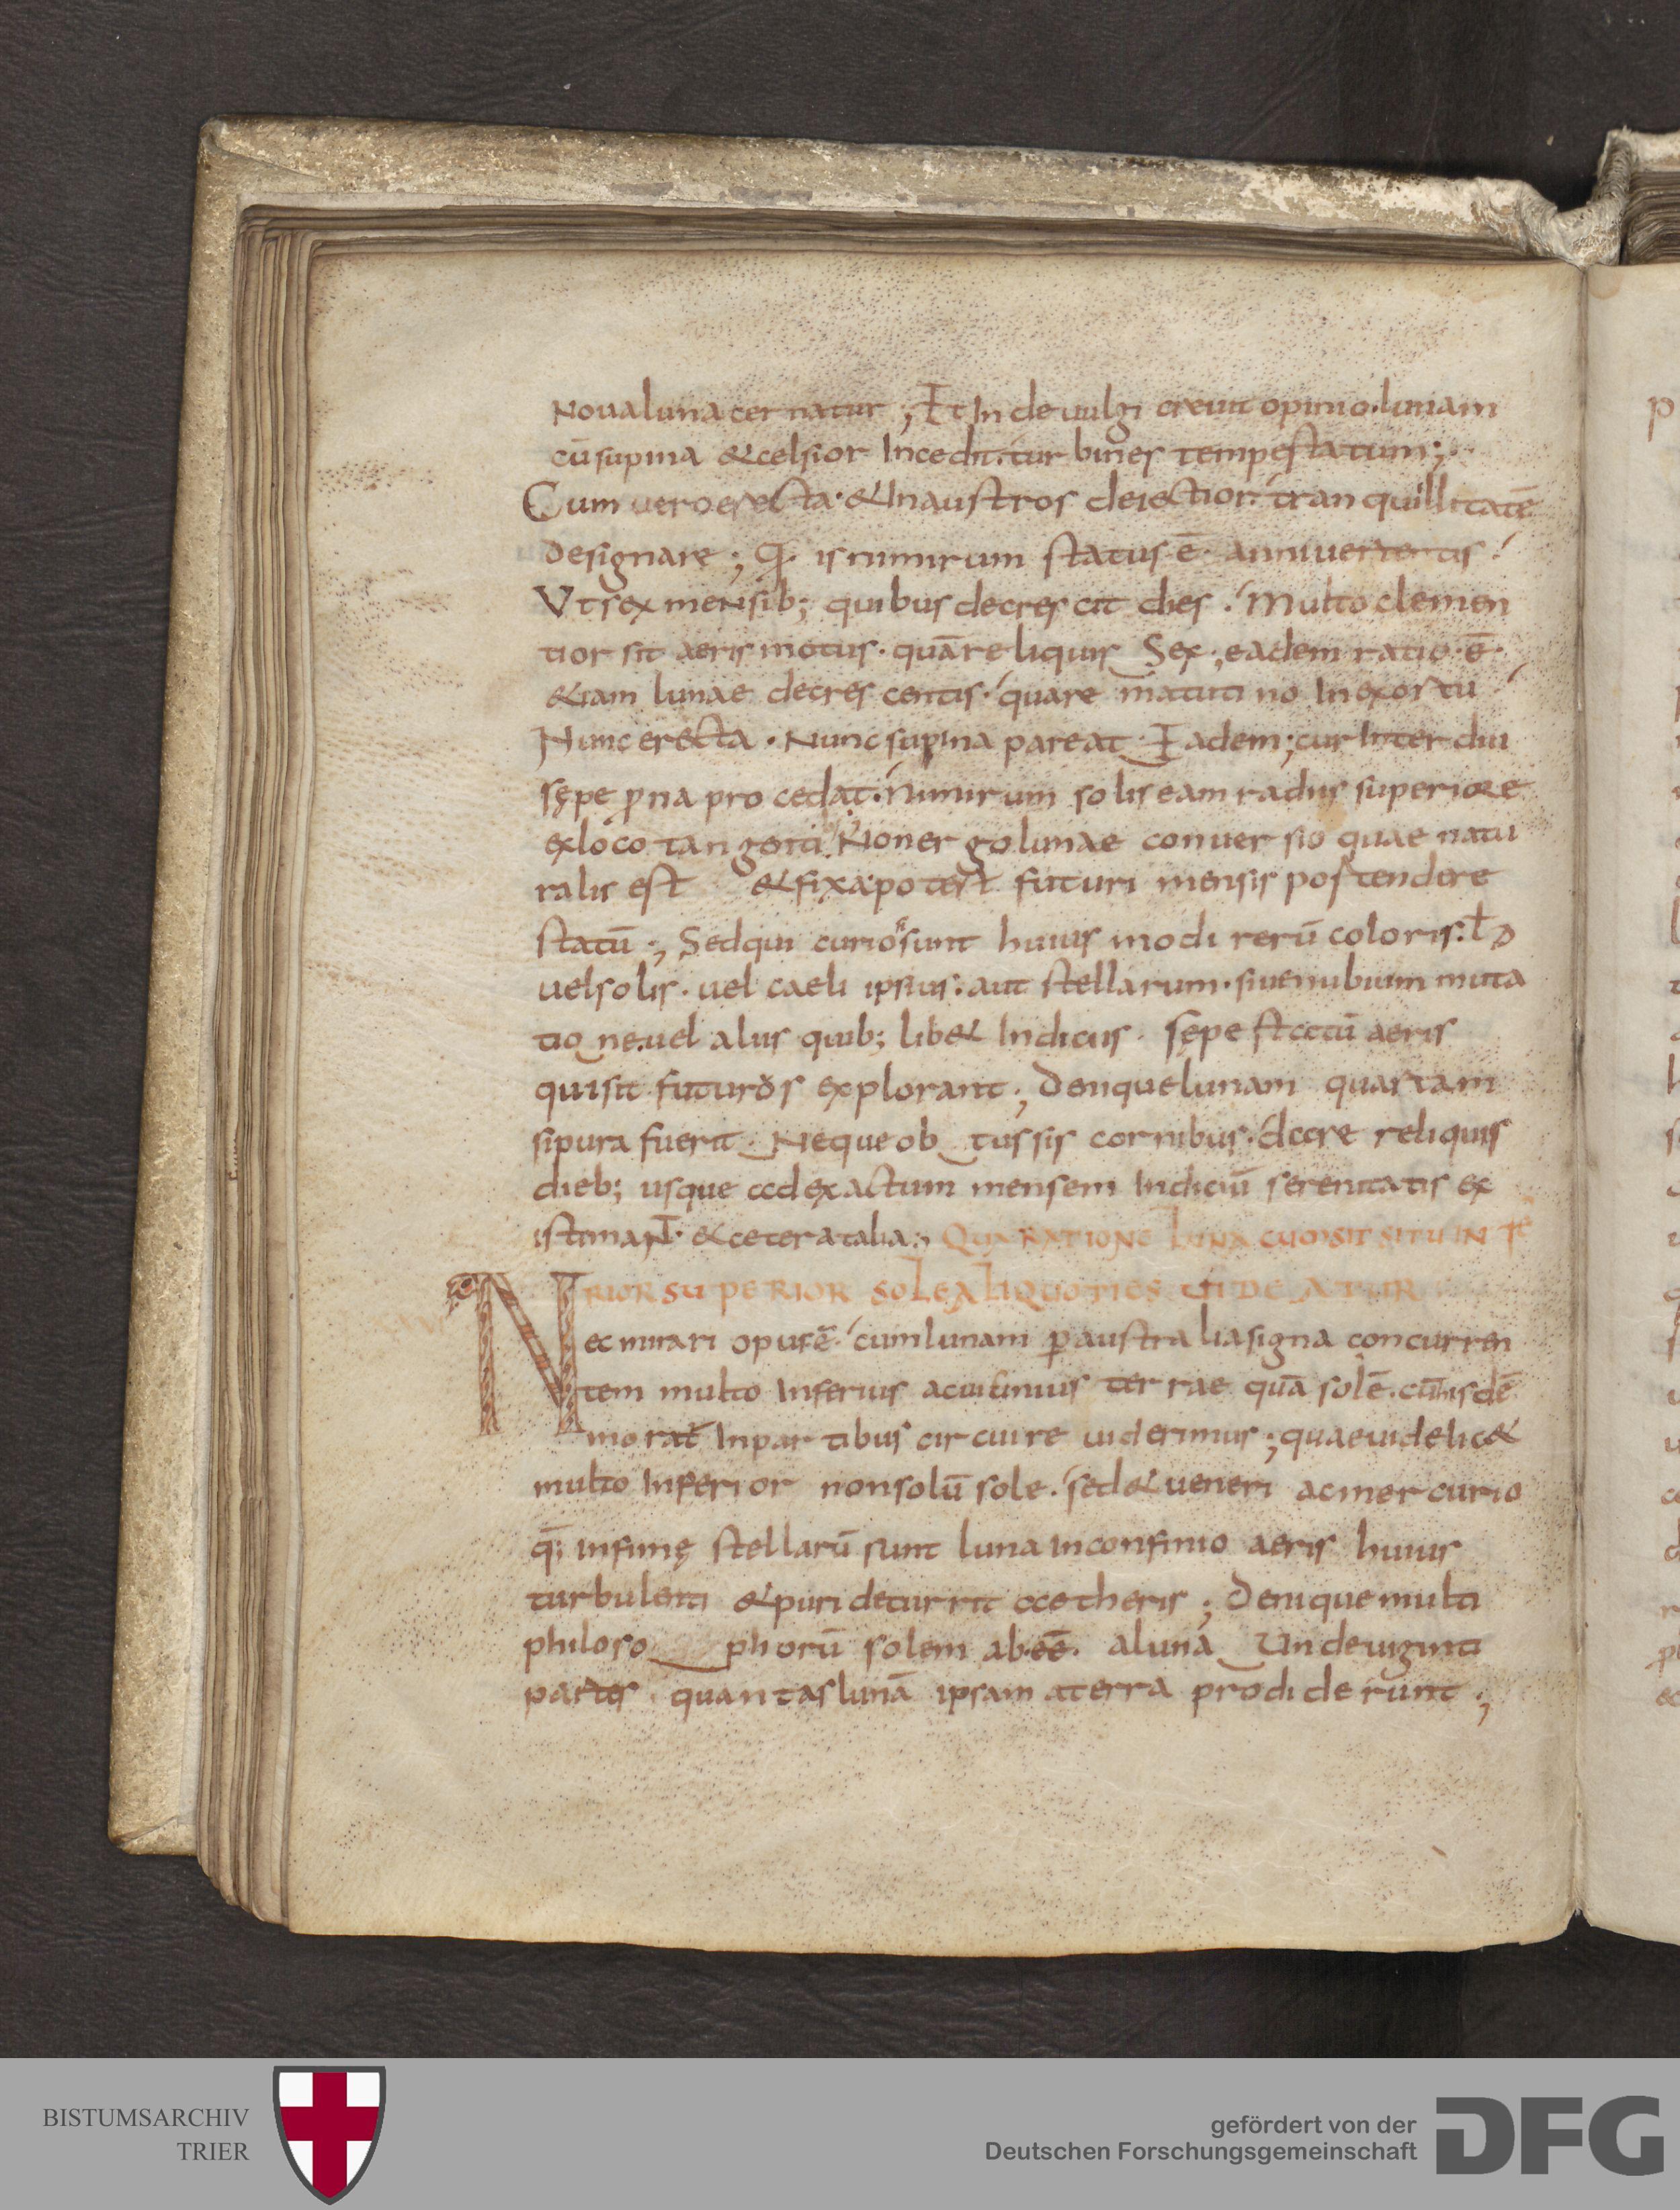 Noua luna cernatur ; Et Inde uulgi creuit opinio. lunam
cū supina &celsior Incedit. turbines tempestatum ;
Cum uero erecta · & In austros deiectior. tranquillitatē
designare ; q̄ is nimirum status ē anni uertentis .
Ut sex mensib; quibus decrescit dies . Multo clemen
tior sit aeris motus · quā reliquis Sex ; eadem ratio · ē ·
&iam lunae decrescentis · quare matutino In exortu
Nunc erecta · Nunc supina pareat Eadem ; cur Interdiu
sępe p̱na procedat. Nimirum solis eam radiis superiore
ex loco tangenti. Non ergo lunae conuersio quae natu
ralis est & fixa potest futuri mensis postendere
statū ; Sed qui curiosi sunt huius modi rerū coloris: ł
uel solis · uel caeli ipsius. aut stellarum · siue nubium muta
tione. uel aliis quib; lib& Indiciis · sępe statū aeris
qui sit futurus explorant ; Denique lunam quartam
si pura fuerit Neque obtussis cornibus · dare reliquis
dieb; usque ad exactum mensem Indiciū serenitatis ex
istimaNT · &cetera talia ; QUA RATIONE LUNA CUM SIT SITU INFE
RIOR SUPERIOR SOLE ALIQUOTIES UIDEATUR
XXVI
Nec mirari opus ē · cum lunam p̱ australia signa concurren
tem multo Inferius ac uicinius terrae quā solē. cū hisdē
morat̄ In partibus circuire uiderimus ; quae uidelic&
multo Inferior non solū sole . sed & ueneri ac mercurio
q̄; infimę stellarū sunt luna in confinio aeris huius
turbulenti & puri deturrit aetheris ; Denique multi
philosophorū solem ab·eē · a luna Undeuiginti
partes · quantas lunā ipsam a terra prodiderunt ;
BISTUMSARCHIV
TRIER
gefördert von der
Deutschen Forschungsgemeinschaft
DFG